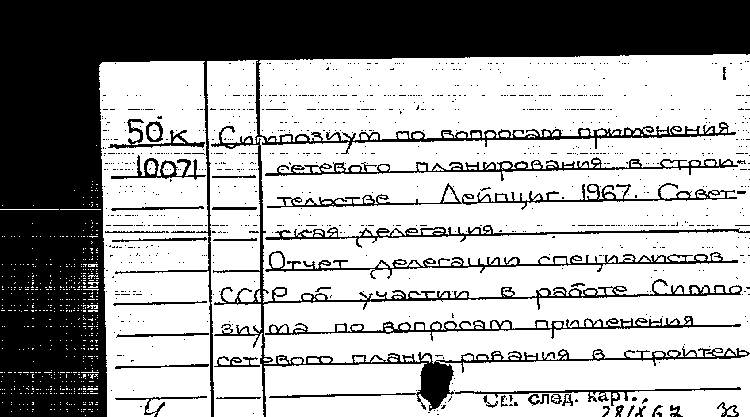 1
50к Симпозиум по вопросам применения
10071 сетевого планирования в строи-
тельстве. Лейпциг. 1967. Совет-
ская делегация.
Отчет делегации специалистов
СССР об участии в работе Симпо-
зиума по вопросам применения
сетевого плани- рования в строитель
См. след. карт.
28/IX 67 33